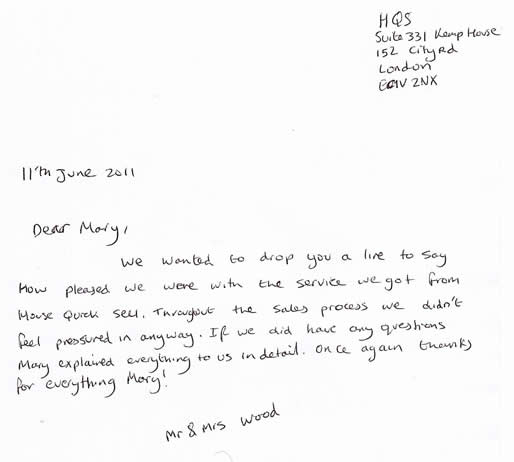 HQS
Suite 331 Kemp House
152 City Rd
London
EC1V 2NX
11'th June 2011
Dear Mary,
We wanted to drop you a line to say
How pleased we were with the service we got from
House Quick Sell. Throughout the sales process we didn't
feel pressured in anyway. If we did have any questions
Mary explained everything to us in detail. Once again thanks
for everything Mary!
Mr & Mrs Wood